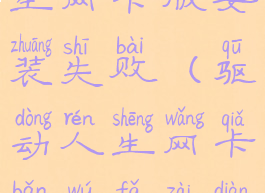 生网卡版安
zhuāng shī bài qū
装失败（驱
dòng rén shēng wǎng qiǎ
动人生网卡
bǎn wú fǎ zài diàn